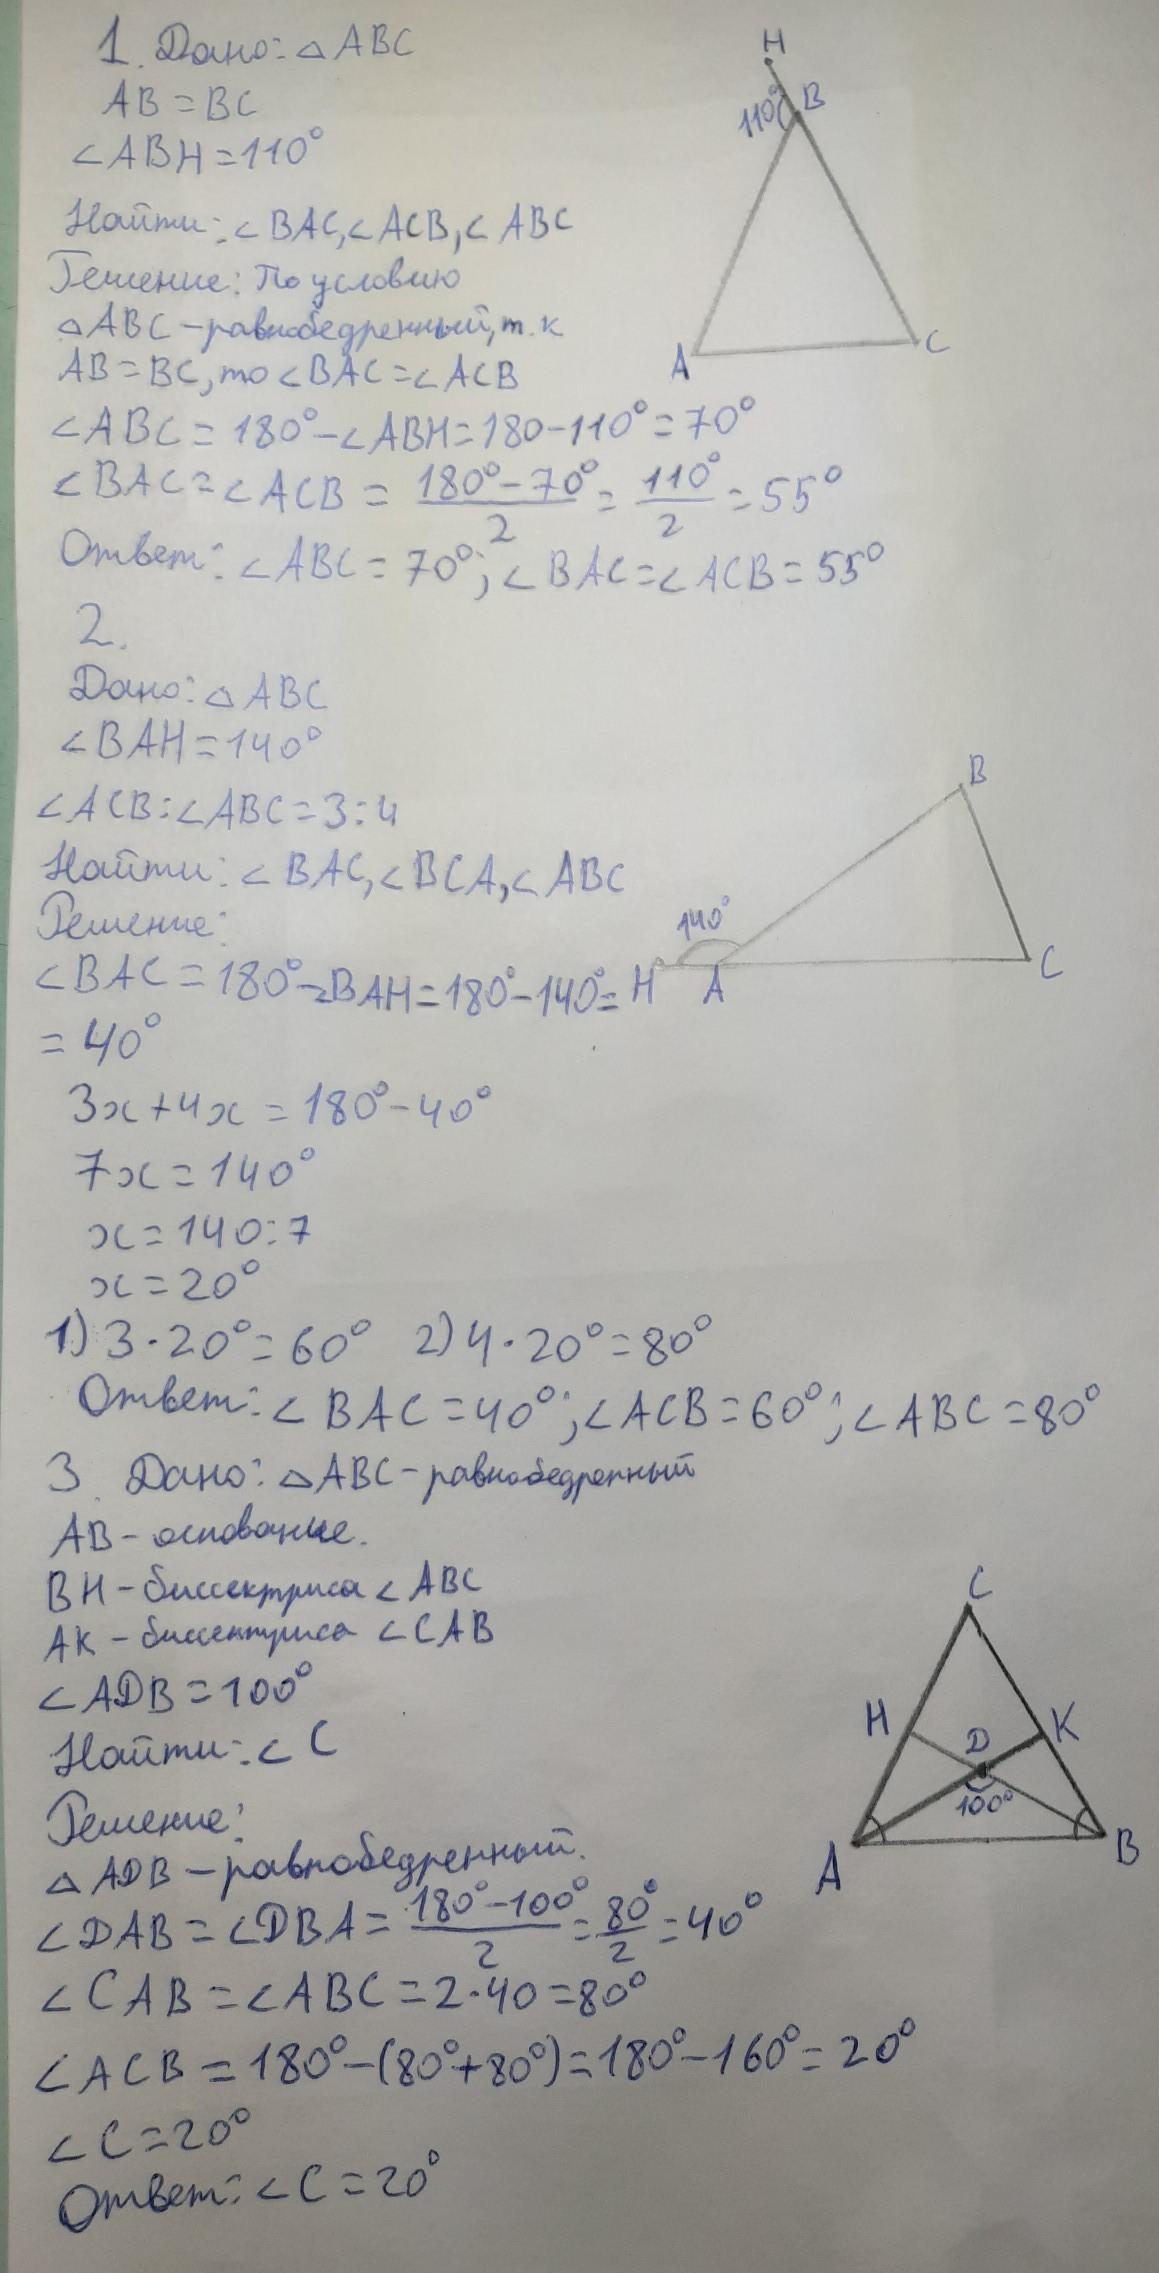 1. Дано: △ABC
AB = BC
∠ABH = 110°
Найти: ∠BAC, ∠ACB, ∠ABC
Решение: По условию
△ABC - равнобедренный, т.к
AB = BC, то ∠BAC = ∠ACB
∠ABC = 180° - ∠ABH = 180 - 110° = 70°
∠BAC = ∠ACB = (180° - 70°)/2 = 110°/2 = 55°
Ответ: ∠ABC = 70°; ∠BAC = ∠ACB = 55°
H
110°
B
A
C
2.
Дано: △ABC
∠BAH = 140°
∠ACB : ∠ABC = 3 : 4
Найти: ∠BAC, ∠BCA, ∠ABC
Решение:
∠BAC = 180° - ∠BAH = 180° - 140° =
= 40°
3x + 4x = 180° - 40°
7x = 140°
x = 140 : 7
x = 20°
1) 3 · 20° = 60° 2) 4 · 20° = 80°
Ответ: ∠BAC = 40°; ∠ACB = 60°; ∠ABC = 80°
B
140°
H
A
C
3. Дано: △ABC - равнобедренный
AB - основание.
BH - биссектриса ∠ABC
AK - биссектриса ∠CAB
∠ADB = 100°
Найти: ∠C
Решение:
△ADB - равнобедренный.
∠DAB = ∠DBA = (180° - 100°)/2 = 80°/2 = 40°
∠CAB = ∠ABC = 2 · 40 = 80°
∠ACB = 180° - (80° + 80°) = 180° - 160° = 20°
∠C = 20°
Ответ: ∠C = 20°
C
H
K
D
100°
A
B